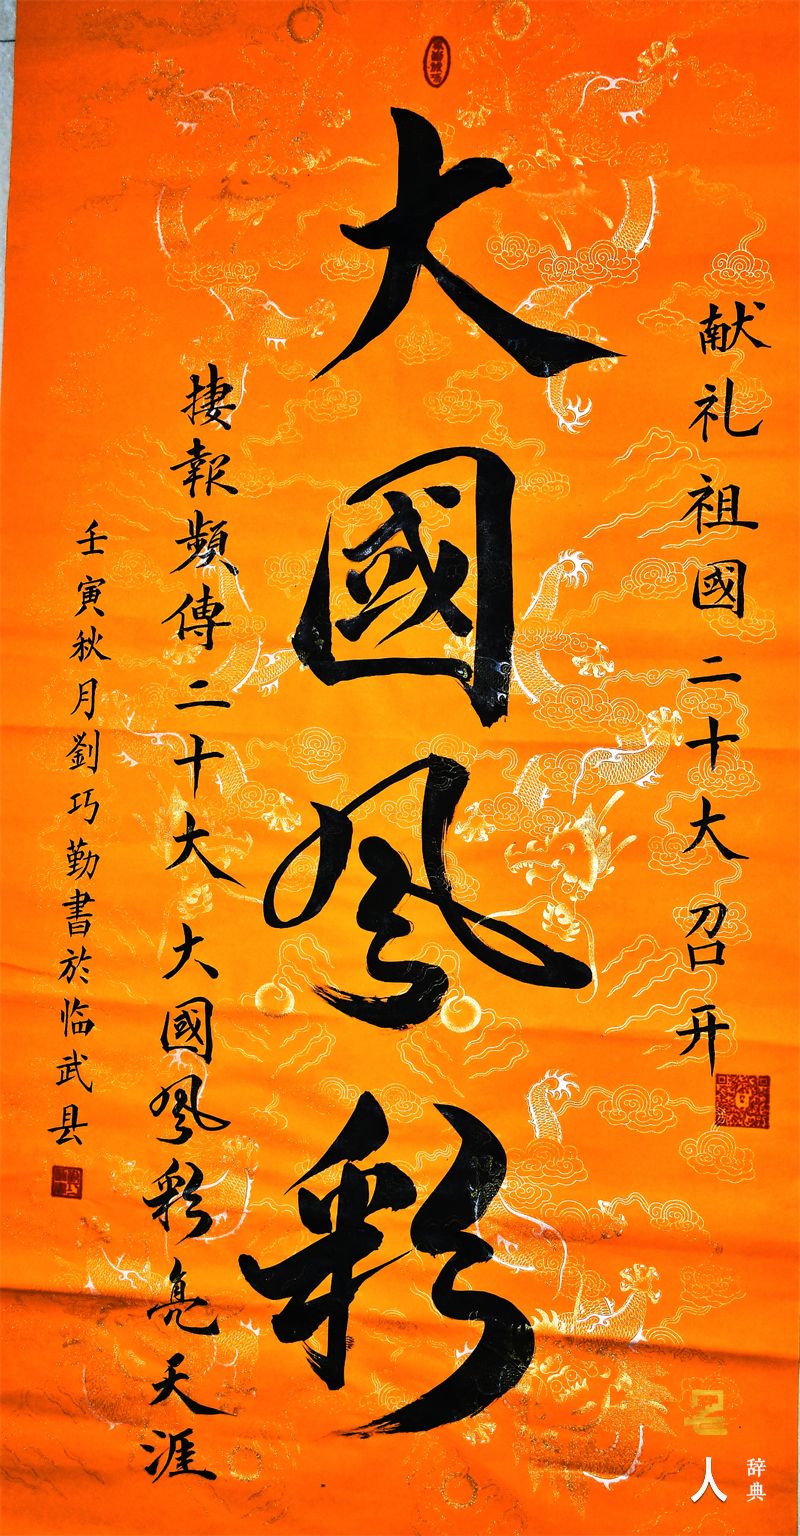 献礼祖國二十大召开
大國风彩
捷報频傳二十大大國风彩亮天涯
壬寅秋月劉巧勤書於临武县
人
辞典